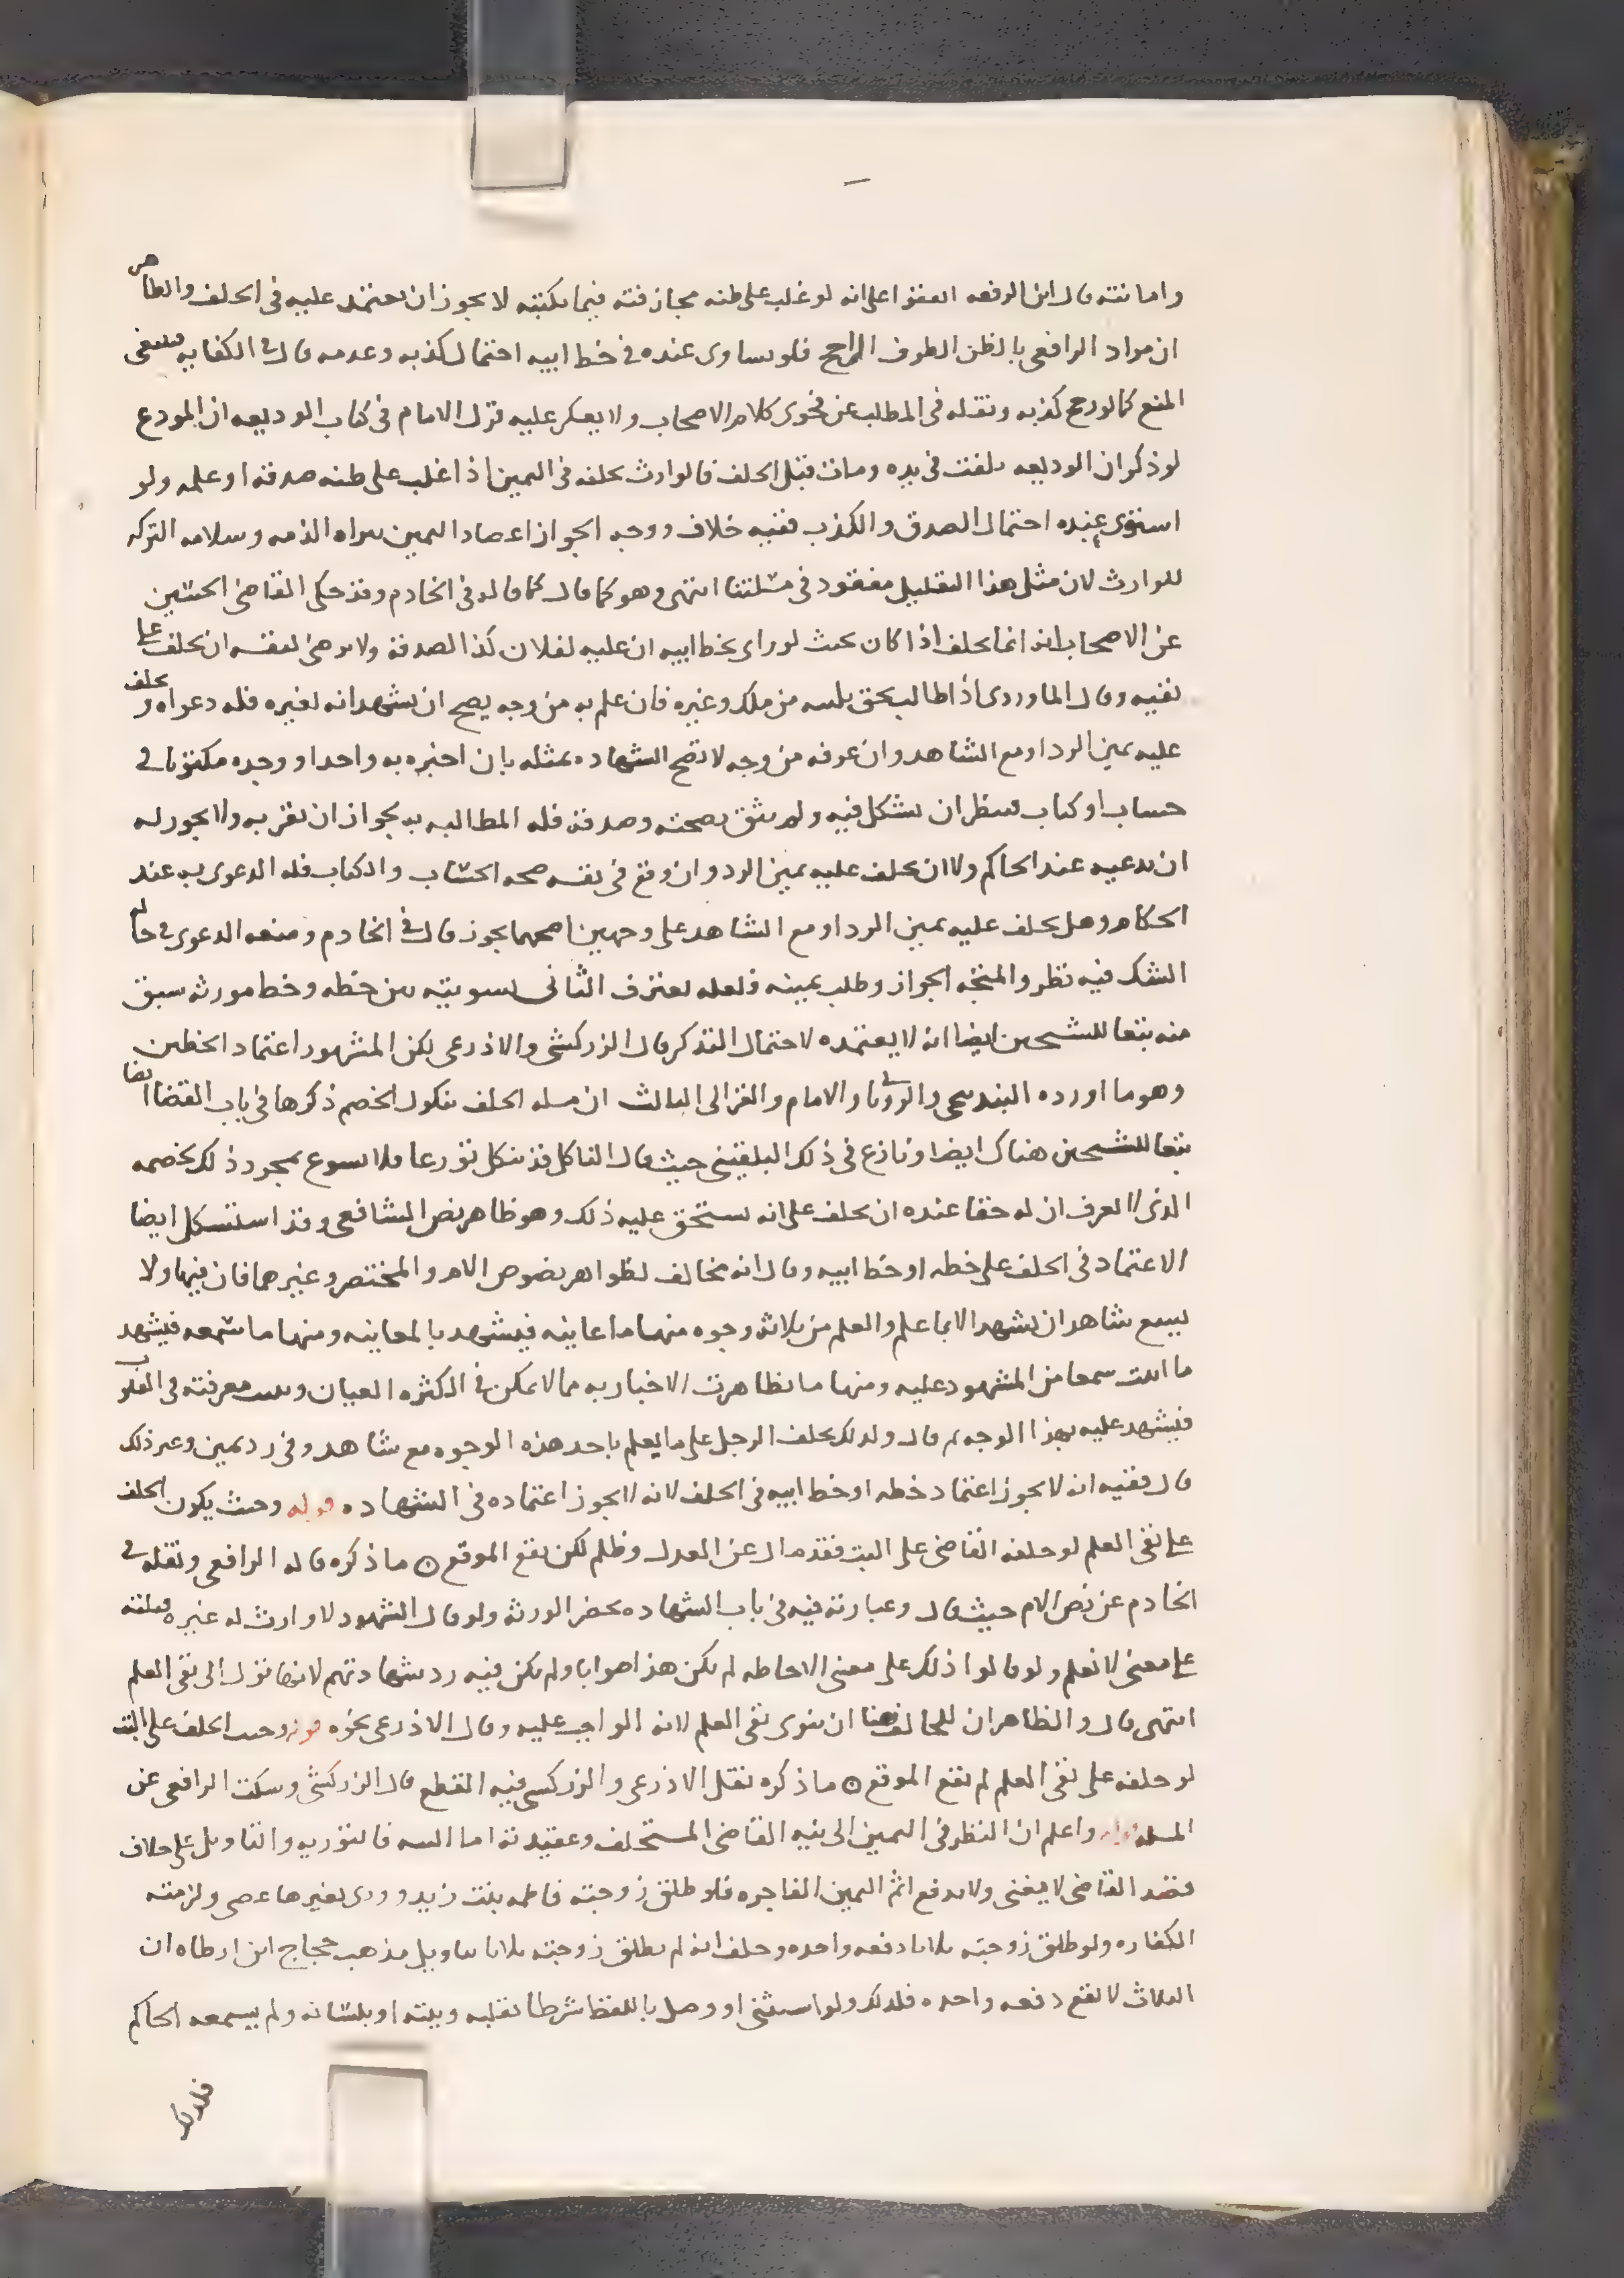 وامانته قال ابن الرفعه اتفقوا على انه لو غلب على ظنه مجازفته فيما يكتبه لا يجوز ان يعتمد عليه في الحلف والظاهر
ان مراد الرافعي بالظن الطرف الراجح فلو تساوى عنده في خط ابيه احتمال كذبه وعدمه قال في الكفايه فينبغي
المنع كما لو رجح كذبه ونقله في المطلب عن فحوى كلام الاصحاب ولا يعكر عليه قول الامام في كتاب الوديعه ان المودع
لو ذكر ان الوديعه تلفت في يده ومات قبل الحلف فالوارث يحلف في اليمين اذا غلب على ظنه صدقه او علمه ولو
استوى عنده احتمال الصدق والكذب ففيه خلاف ووجه الجواز اعتضاد اليمين ببراه الذمه وسلامه التركه
للوارث لان مثل هذا التعليل مفقود في مسئلتنا انتهى وهو كما قال كما قاله في الخادم وقد حكى القاضي الحسين
عن الاصحاب انه انما يحلف اذا كان بحيث لو راى بخط ابيه ان عليه لفلان كذا لصدقه ولا يرضى لنفسه ان يحلف على
نفيه وقال الماوردي اذا طالب بحق يلسه من ملك وغيره فان علم به من وجه يصح ان يشهد انه لغيره فله دعواه ويحلف
عليه يمين الرد او مع الشاهد وان عرفه من وجه لا تصح الشهاده بمثله بان اخبره به واحد او وجده مكتوبا في
حساب او كتاب فينظر ان تشكك فيه ولم يثق بصحته وصدقه فله المطالبه به بجواز ان يقر به ولا يجوز له
ان يدعيه عند الحاكم ولا ان يحلف عليه يمين الرد وان وقع في نفسه صحه الحساب والكتاب فله الدعوى به عند
الحكام وهل يحلف عليه يمين الرد او مع الشاهد على وجهين اصحهما يجوز قال في الخادم ومنعه الدعوى في حاله
الشك فيه نظر والمتجه الجواز وطلب يمينه فلعله يعترف الثاني تسويته بين خطه وخط مورثه سبق
منه تبعا للشيخين ايضا انه لا يعتمده لاحتمال التذكر قال الزركشي والاذرعي لكن المشهور اعتماد الخطين
وهو ما اورده البندنيجي والروياني والامام والغزالي الثالث ان مسله الحلف بنكول الخصم ذكرها في باب القضا ايضا
تبعا للشيخين هناك ايضا ونازع في ذلك البلقيني حيث قال الناكل قد ينكل تورعا فلا يسوغ بمجرد ذلك لخصمه
الذي لا يعرف ان له حقا عنده ان يحلف على انه يستحق عليه ذلك وهو ظاهر نص الشافعي وقد استشكل ايضا
الاعتماد في الحلف على خطه او خط ابيه وقال انه مخالف لظواهر نصوص الام والمختصر وغيرهما فان فيها ولا
يسع شاهد ان يشهد الا بما علم والعلم من ثلاثه وجوه منها ما عاينه فيشهد بالمعاينه ومنها ما سمعه فيشهد
ما اثبت سمعا من المشهود عليه ومنها ما تظاهرت الاخبار به مما لا يمكن في اكثره العيان وثبتت معرفته في القلوب
فيشهد عليه بهذا الوجه ثم قال ولذلك يحلف الرجل على ما يعلم باحد هذه الوجوه مع شاهد وفي رد يمين وغير ذلك
قال ففيه انه لا يجوز اعتماد خطه او خط ابيه في الحلف لانه لا يجوز اعتماده في الشهاده قوله وحيث يكون الحلف
على نفي العلم لو حلفه القاضي على البت فقد مال عن العدل وظلم لكن يقع الموقع ٥ ما ذكره قاله الرافعي ونقله في
الخادم عن نص الام حيث قال وعبارته فيه في باب الشهاده بحضر الورثه ولو قال الشهود لا وارث له غيره قبلته
على معنى لا نعلم ولو قالوا ذلك على معنى الاحاطه لم يكن هذا صوابا ولم يكن فيه رد شهادتهم لانها تؤل الى نفي العلم
انتهى قال والظاهر ان للحالف هنا ان ينوي نفي العلم لانه الواجب عليه وقال الاذرعي نحوه قوله وحيث الحلف على البت
لو حلفه على نفي العلم لم يقع الموقع ٥ ما ذكره نقل الاذرعي والزركشي فيه القطع قال الزركشي وسكت الرافعي عن
المسله قوله واعلم ان النظر في اليمين الى نيه القاضي المستحلف وعقيدته اما النيه فالتوريه والتاويل على خلاف
قصد القاضي لا يغني ولا يدفع اثم اليمين الفاجره فلو طلق زوجته فاطمه بنت زيد وورى بغيرها عصى ولزمته
الكفاره ولو طلق زوجته ثلاثا دفعه واحده وحلف انه لم يطلق زوجته ثلاثا بتاويل مذهب حجاج ابن ارطاه ان
الثلاث لا تقع دفعه واحده فلذلك ولو استثنى او وصل باللفظ شرطا بقلبه ونيته او بلسانه ولم يسمعه الحاكم
فلذلك